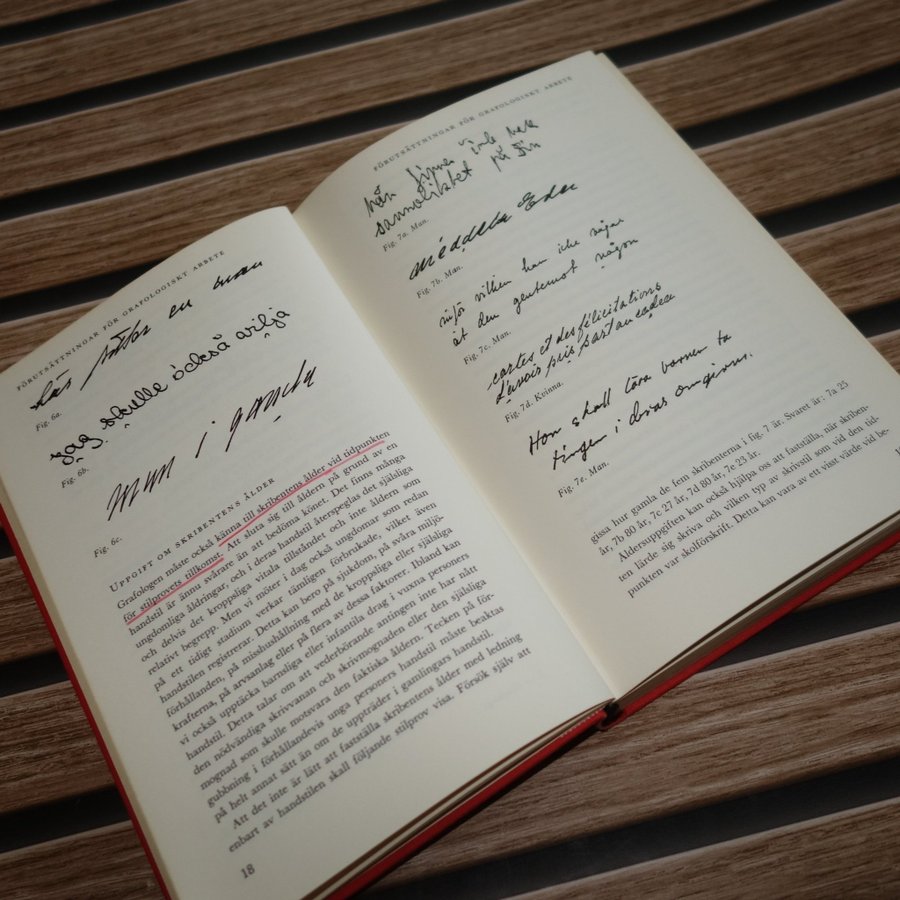 FÖRUTSÄTTNINGAR FÖR GRAFOLOGISKT ARBETE
en
Fig. 6a.
jag skulle också vilja
Fig. 6b.
i
Fig. 6c.
UPPGIFT OM SKRIBENTENS ÅLDER
Grafologen måste också känna till skribentens ålder vid tidpunkten
för stilprovets tillkomst. Att sluta sig till åldern på grund av en
handstil är ännu svårare än att bedöma könet. Det finns många
ungdomliga åldringar, och i deras handstil återspeglas det själsliga
och delvis det kroppsliga vitala tillståndet och inte åldern som
relativt begrepp. Men vi möter i dag också ungdomar som redan
på ett tidigt stadium verkar tämligen förbrukade, vilket även
handstilen registrerar. Detta kan bero på sjukdom, på svåra miljö-
förhållanden, på misshushållning med de kroppsliga eller själsliga
krafterna, på arvsanlag eller på flera av dessa faktorer. Ibland kan
vi också upptäcka barnsliga eller infantila drag i vuxna personers
handstil. Detta talar om att vederbörande antingen inte har nått
den nödvändiga skrivvanan och skrivmognaden eller den själsliga
mognad som skulle motsvara den faktiska åldern. Tecken på för-
gubbning i förhållandevis unga personers handstil måste beaktas
på helt annat sätt än om de uppträder i gamlingars handstil.
Att det inte är lätt att fastställa skribentens ålder med ledning
enbart av handstilen skall följande stilprov visa. Försök själv att
18
FÖRUTSÄTTNINGAR FÖR GRAFOLOGISKT ARBETE
finner inte
sannolikhet på
Fig. 7a. Man.
meddela Eder
Fig. 7b. Man.
inför vilken han icke vågar
åt den gentemot någon
Fig. 7c. Man.
cartes et des félicitations
d'avois pris part au cadea
Fig. 7d. Kvinna.
Hon skall lära barnen ta
tingen i deras omgivni.
Fig. 7e. Man.
gissa hur gamla de fem skribenterna i fig. 7 är. Svaret är: 7a 25
år, 7b 80 år, 7c 27 år, 7d 80 år, 7e 23 år.
Åldersuppgiften kan också hjälpa oss att fastställa, när skriben-
ten lärde sig skriva och vilken typ av skrivstil som vid den tid-
punkten var skolförskrift. Detta kan vara av ett visst värde vid be-